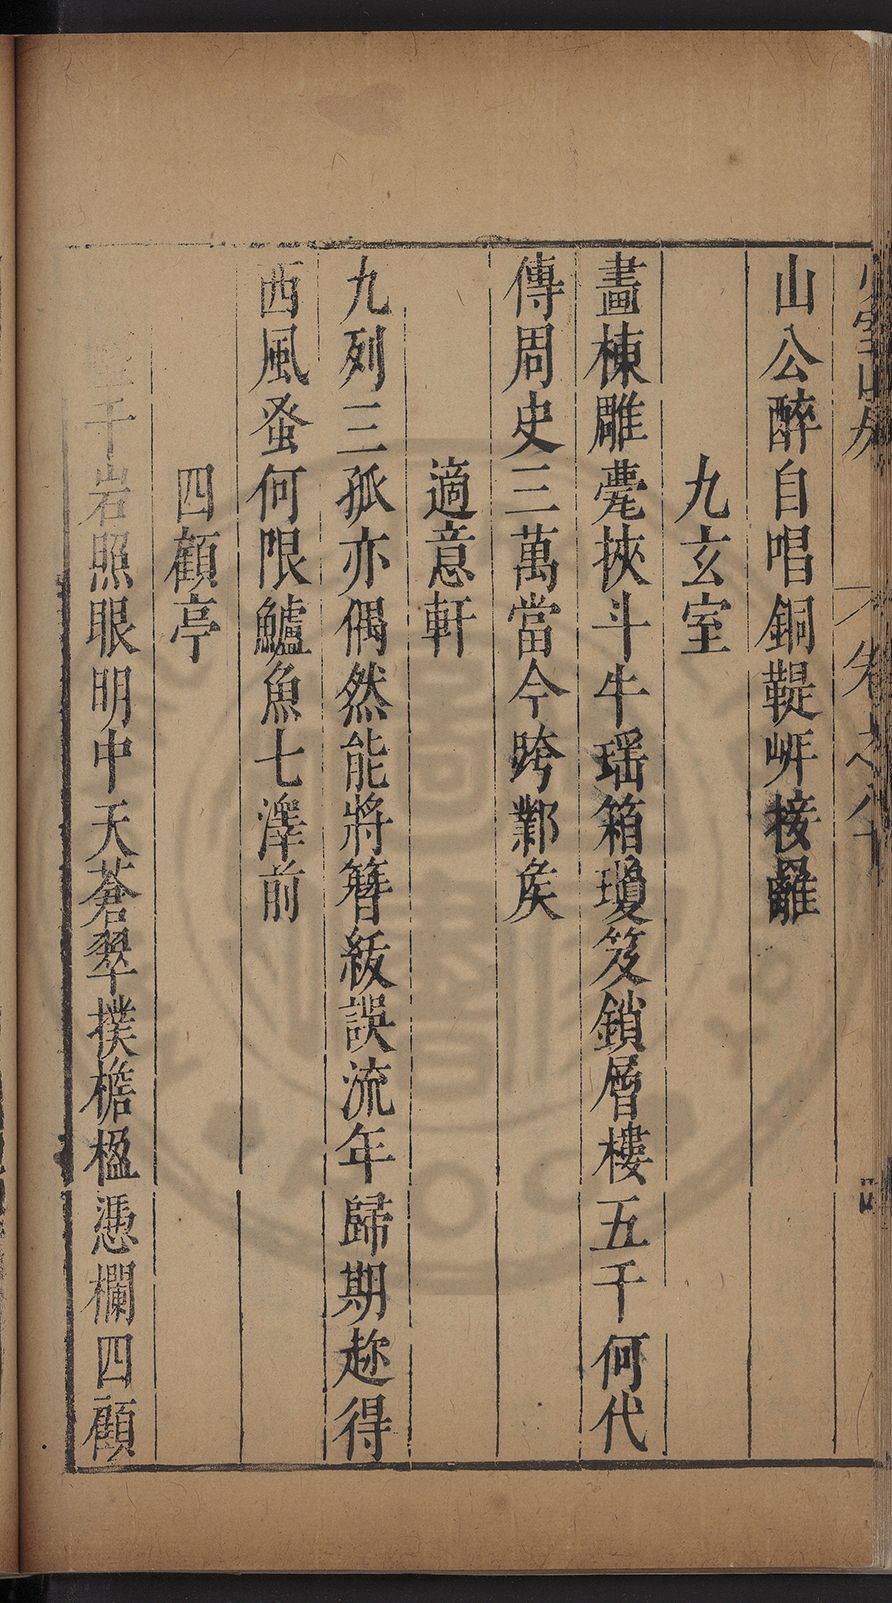 山公醉自唱銅鞮岸接䍦
九玄室
畫棟雕甍挾斗牛瑶箱瓊笈鎖層樓五千何代
傳周史三萬當今跨鄴矦
適意軒
九列三孤亦偶然能將簪紱誤流年歸期趂得
西風蚤何限鱸魚七澤前
四顧亭
千岩照眼明中天蒼翠撲檐楹憑欄四顧